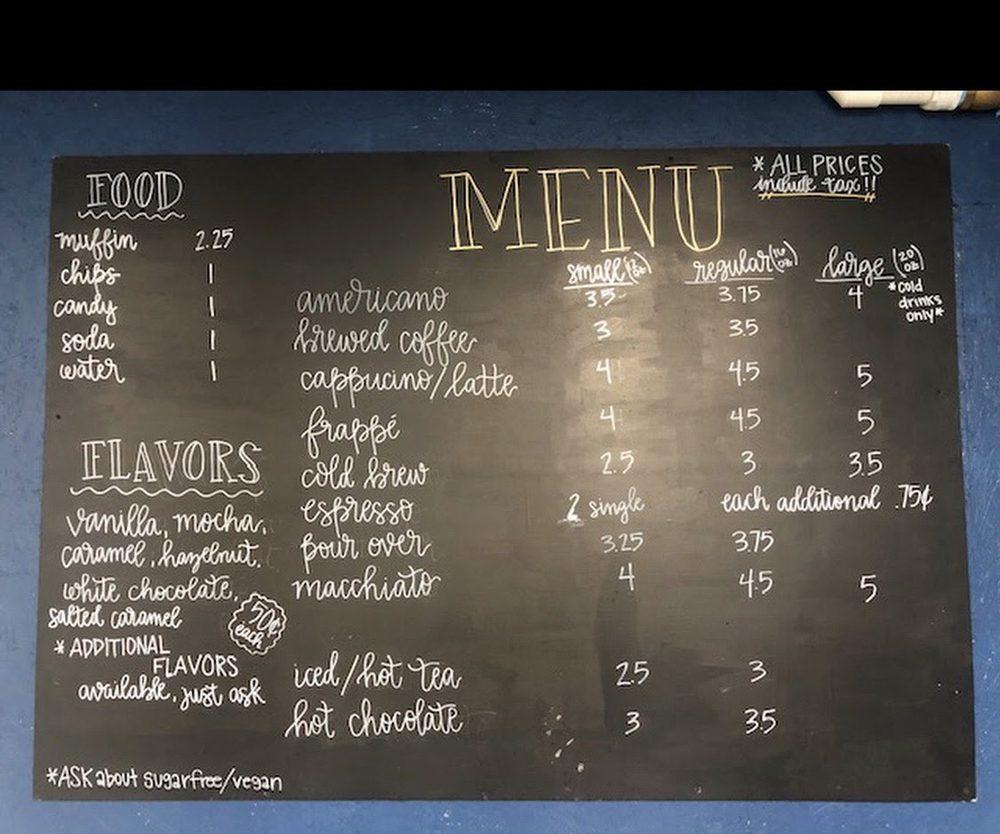 FOOD
muffin 2.25
chips 1
candy 1
soda 1
water 1
FLAVORS
vanilla, mocha,
caramel, hazelnut,
white chocolate,
salted caramel
50¢
each
* ADDITIONAL
FLAVORS
available, just ask
*ASK about sugarfree/vegan
MENU
* ALL PRICES
include tax!!
small (12 oz) regular (16 oz) large (20 oz)
*cold
drinks
only*
americano 3.5 3.75 4
brewed coffee 3 3.5
cappucino/latte 4 4.5 5
frappé 4 4.5 5
cold brew 2.5 3 3.5
espresso 2 single each additional .75¢
pour over 3.25 3.75
macchiato 4 4.5 5
iced/hot tea 2.5 3
hot chocolate 3 3.5